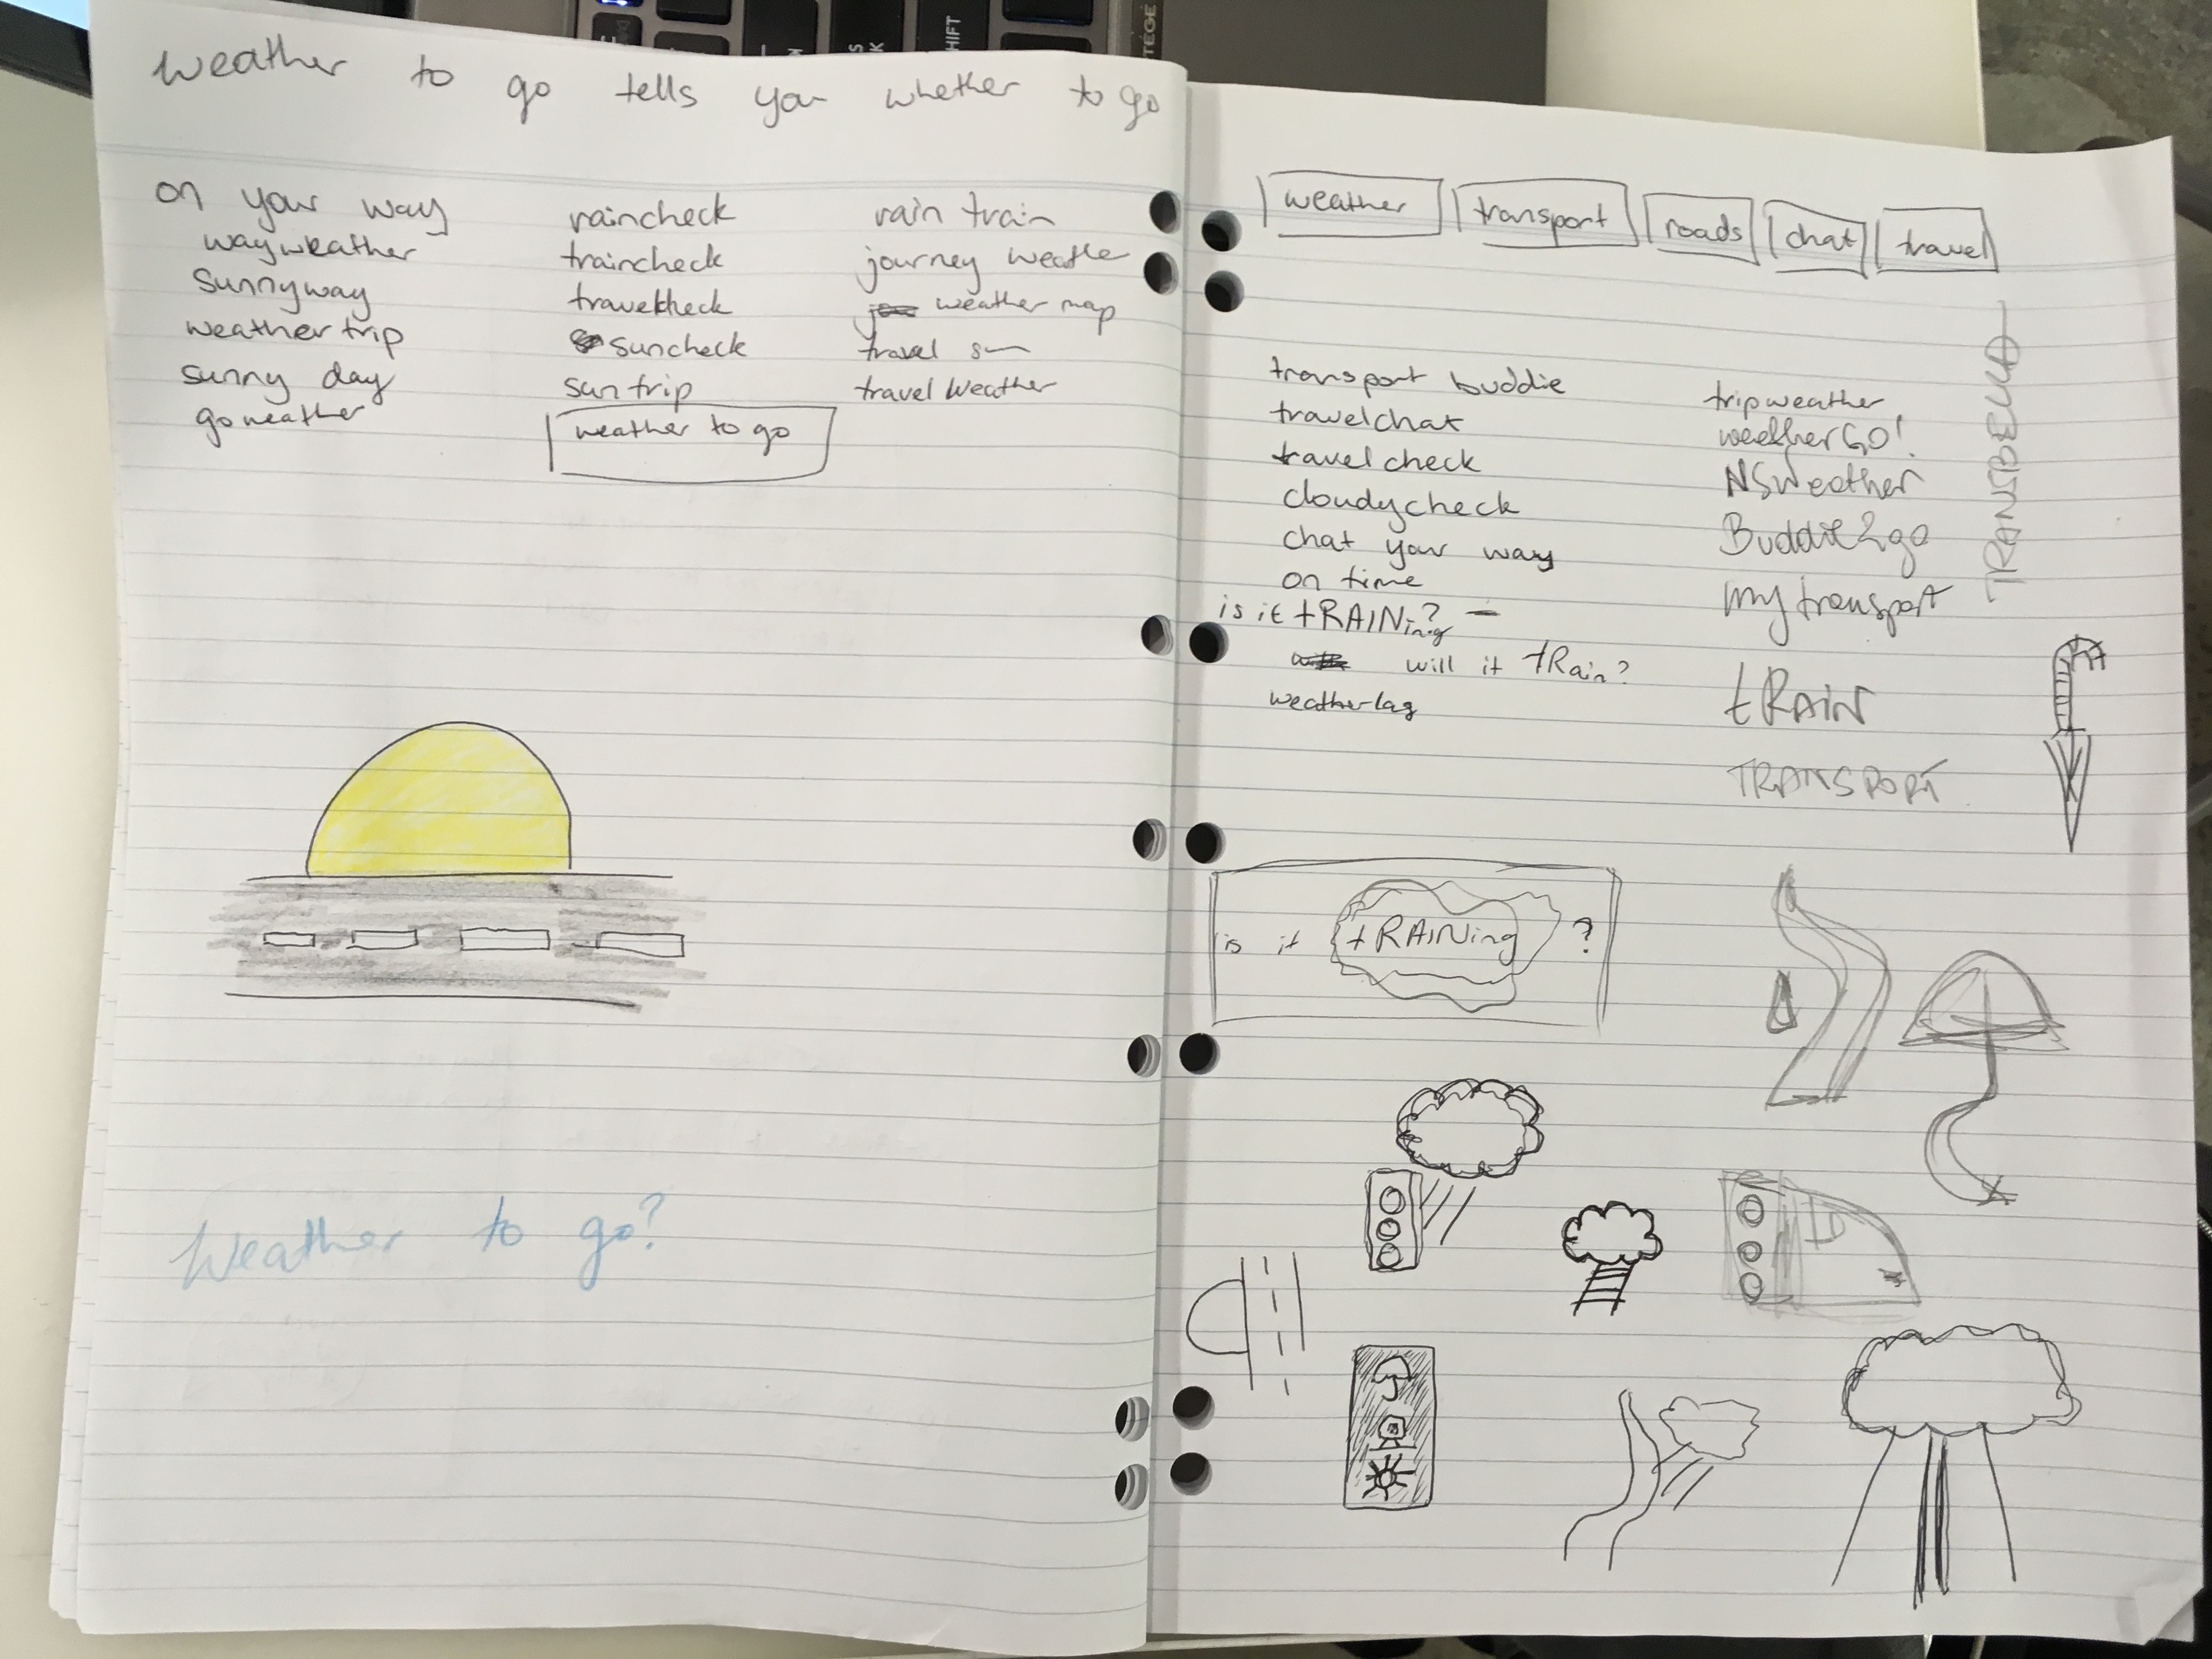 weather to go tells you whether to go
on your way
wayweather
sunnyway
weathertrip
sunny day
goweather
raincheck
traincheck
travelcheck
suncheck
sun trip
weather to go
rain train
journey weather
weather map
travel sun
travelWeather
Weather to go?
weather transport roads chat travel
transport buddie
travelchat
travelcheck
cloudycheck
chat your way
on time
is it tRAINing? -
will it tRain?
weatherlag
tripweather
weatherGO!
NSWeather
Buddie2go
mytransport
tRAIN
TRAINSPORT
is it tRAINing?